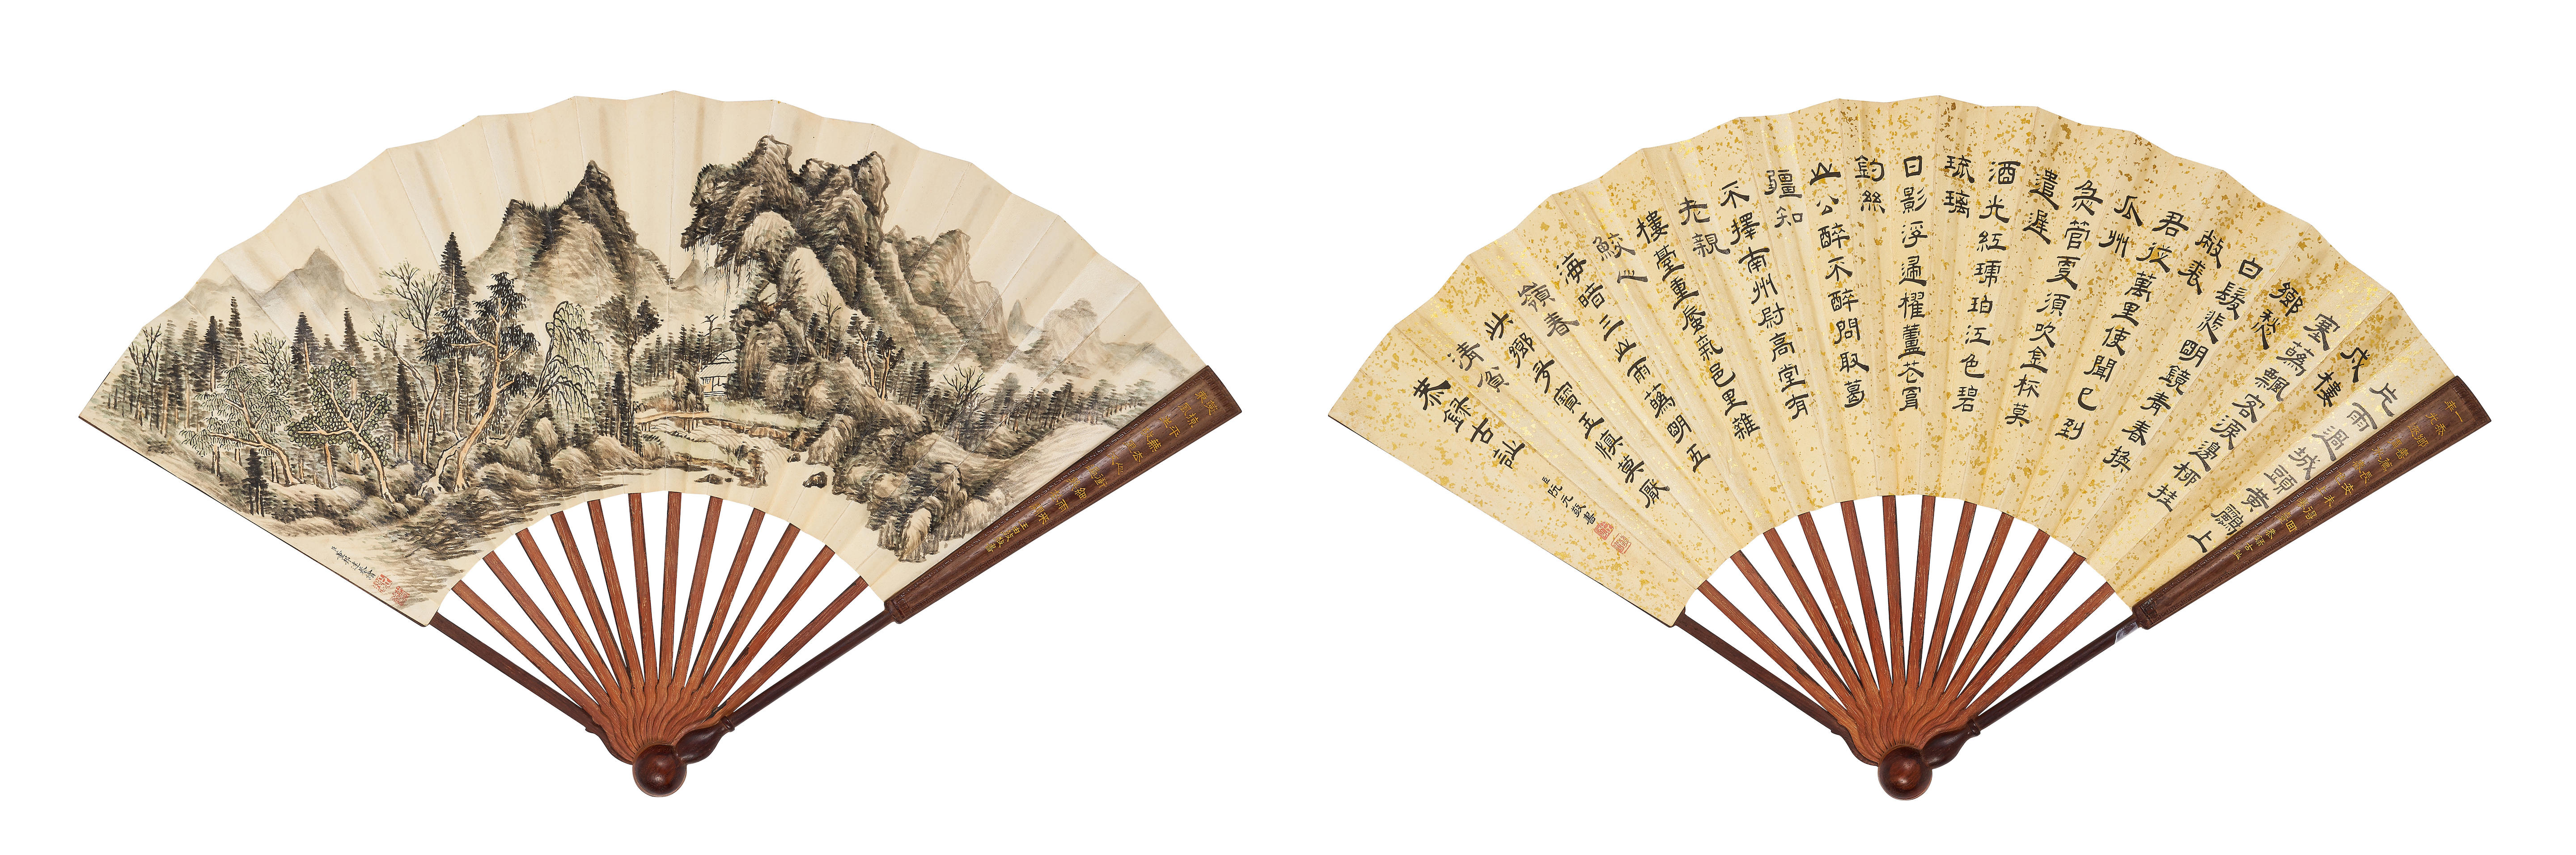 片雨過城頭黃鸝上
戍樓
塞蘤飄客淚邊柳挂
鄉愁
白髮悲明鏡青春換
敝裘
君從萬里使聞已到
瓜州
急管更須吹金杯莫
遣遲
酒光紅琥珀江色碧
琉璃
日影浮歸櫂蘆芲罥
釣絲
山公醉不醉問取葛
疆知
不擇南州尉高堂有
老親
樓臺重蜃氣邑里雜
鮫人
海暗三山雨蘤明五
嶺春
此鄉多寶玉慎莫厭
清貧
恭録古詩
臣阮元敬書